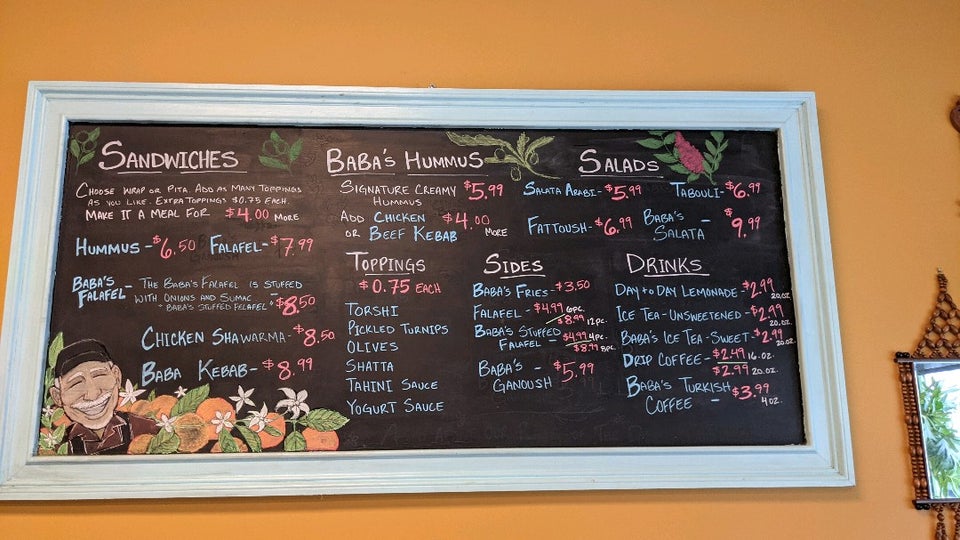 SANDWICHES
CHOOSE WRAP OR PITA. ADD AS MANY TOPPINGS
AS YOU LIKE. EXTRA TOPPINGS $0.75 EACH.
MAKE IT A MEAL FOR $4.00 MORE
HUMMUS - $6.50 FALAFEL - $7.99
BABA'S FALAFEL - THE BABA'S FALAFEL IS STUFFED
WITH ONIONS AND SUMAC
"BABA'S STUFFED FELAFEL" $8.50
CHICKEN SHAWARMA - $8.50
BABA KEBAB - $8.99
BABA'S HUMMUS
SIGNATURE CREAMY $5.99
HUMMUS
ADD CHICKEN $4.00
OR BEEF KEBAB MORE
SALADS
SALATA ARABI - $5.99 TABOULI - $6.99
FATTOUSH - $6.99 BABA'S SALATA - $9.99
TOPPINGS
$0.75 EACH
TORSHI
PICKLED TURNIPS
OLIVES
SHATTA
TAHINI SAUCE
YOGURT SAUCE
SIDES
BABA'S FRIES - $3.50
FALAFEL - $4.99 6PC.
$8.99 12PC.
BABA'S STUFFED
FALAFEL - $4.99 4PC.
$8.99 8PC.
BABA'S - $5.99
GANOUSH
DRINKS
DAY TO DAY LEMONADE - $2.99 20.OZ.
ICE TEA - UNSWEETENED - $2.99 20.OZ.
BABA'S ICE TEA - SWEET - $2.99 20.OZ.
DRIP COFFEE - $2.49 16.OZ.
$2.99 20.OZ.
BABA'S TURKISH
COFFEE - $3.99 4OZ.